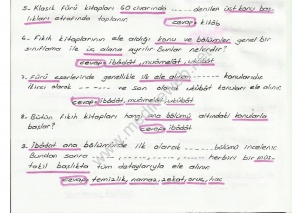 5- Klasik fürû kitapları 60 civarında ........ denilen üst konu baş-
lıkları etrafında toplanır. cevap: kitâb
6- Fıkıh kitaplarının ele aldığı konu ve bölümler genel bir
sınıflama ile üç alana ayrılır. Bunlar nelerdir?
cevap: ibâdât, muâmelât, ukûbât
7- Fürû eserlerinde genellikle ilk ele alınan ........ konularıdır.
İkinci olarak ........ ve son olarak ukûbât konuları ele alınır.
cevap: ibâdât, muâmelât
8- Bütün fıkıh kitapları hangi ana bölümü altındaki konularla
başlar? cevap: ibâdât
9- İbâdât ana bölümünde ilk olarak ........ bölümü incelenir.
Bunları sonra ........ herbiri bir müs-
takil başlıkta tüm detaylarıyla ele alınır.
cevap: temizlik, namaz, zekat, oruç, hac